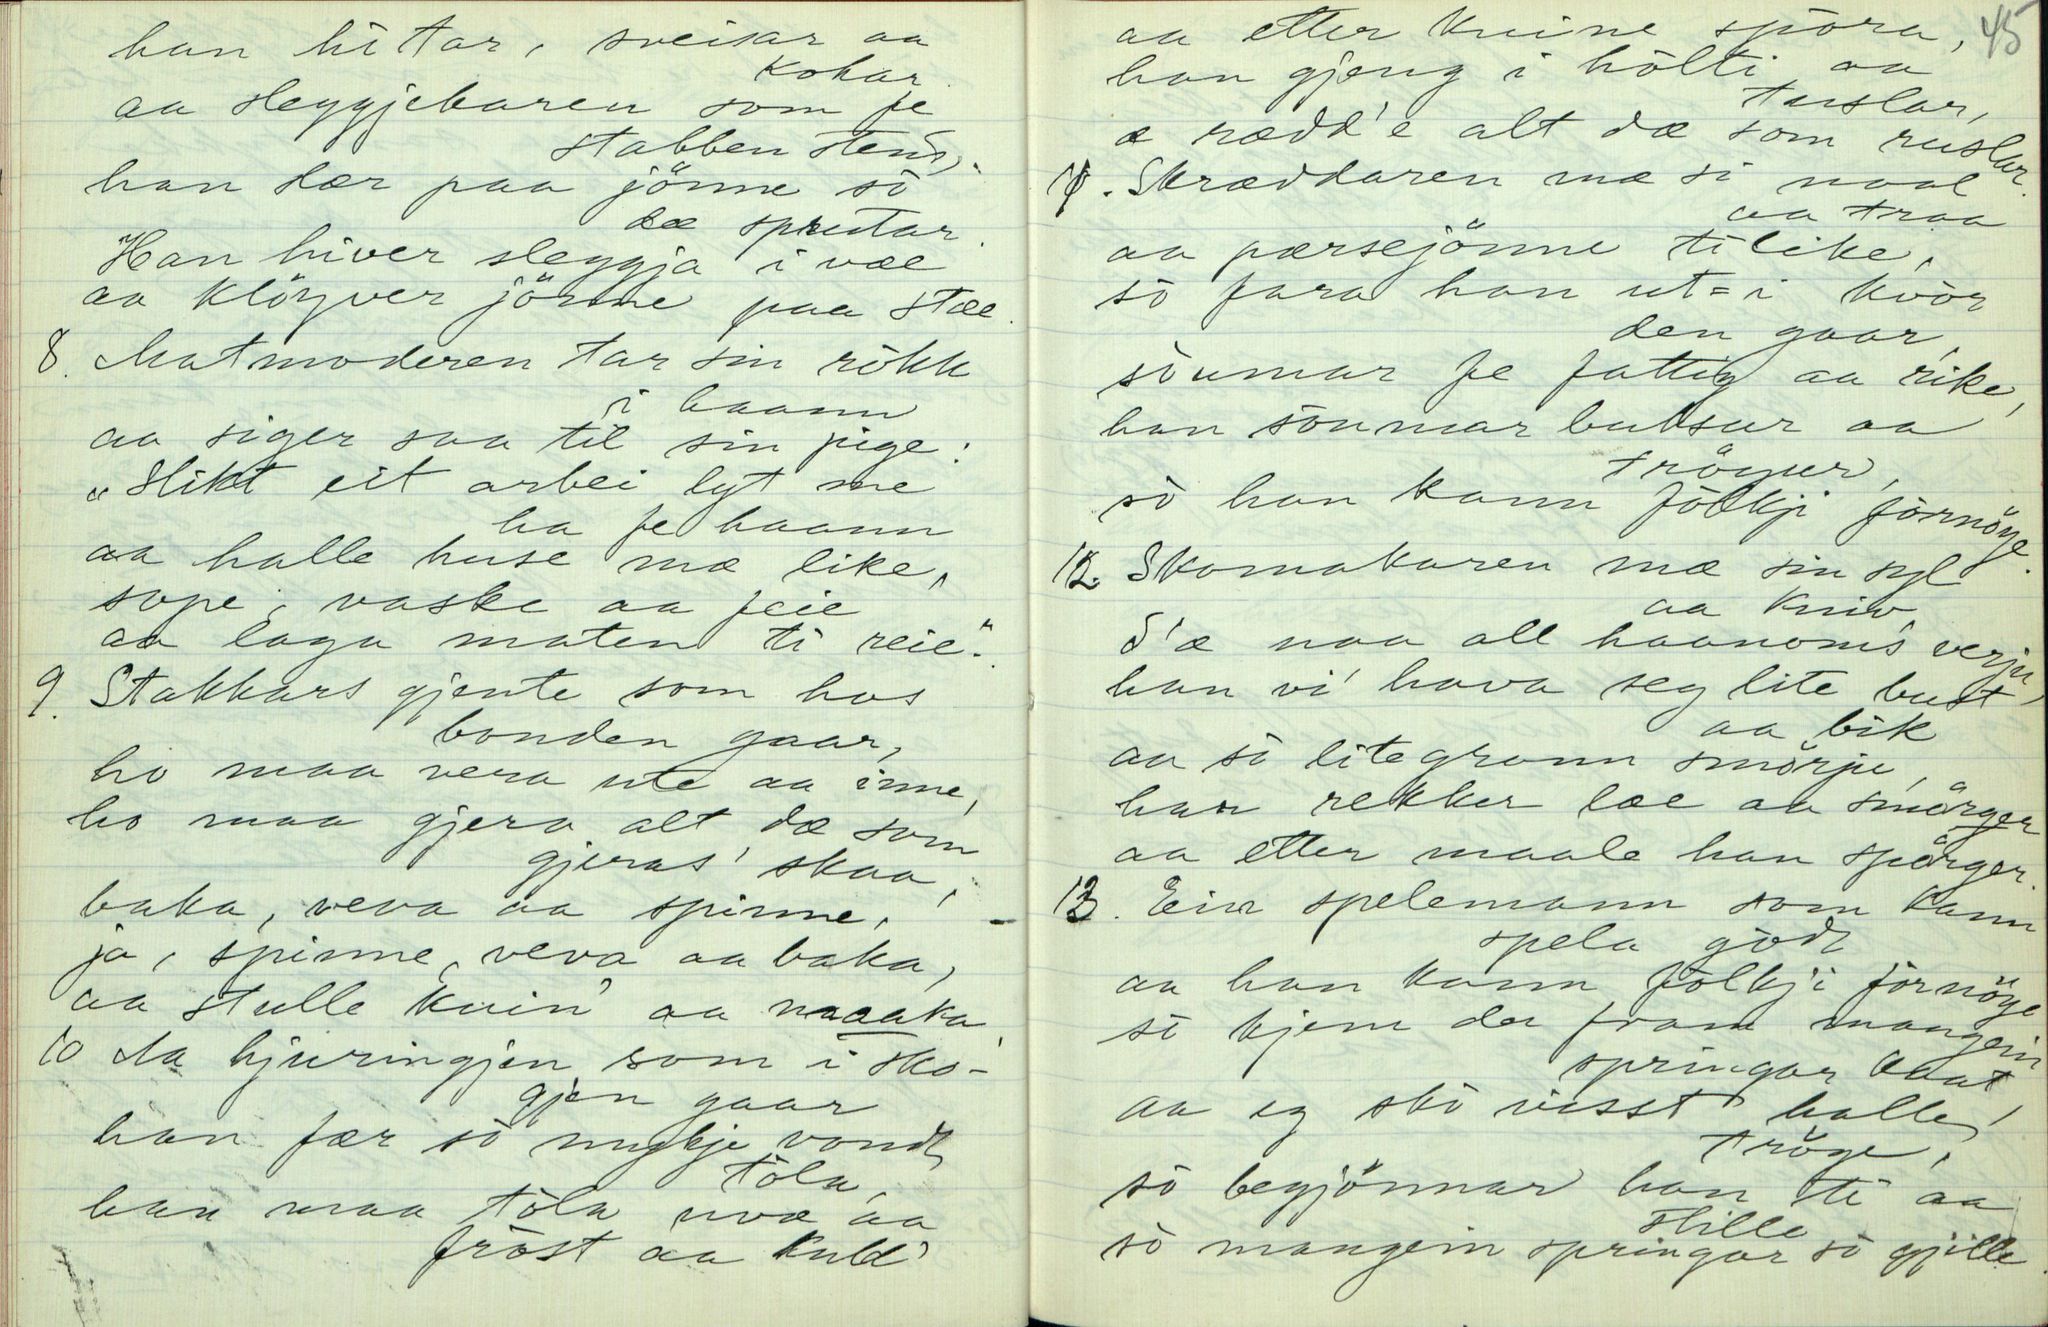 han hitar, sveisar aa
kokar
aa sleggjekaren som fe
stabben stend,
han slær paa jönne sò
dæ sprutar.
Han hiver sleggja i væl
aa klöyver jönne paa stæl.
8. Matmoderen tar sin rókk
i haann
aa siger saa til sin pige:
"Slikt eit arbei lyt me
ha fe haann
aa halle huse mæ like,
sope, vaske aa feie
aa laga maten ti reie".
9. Stakkars gjente som hos
bonden gaar,
ho maa vera ute aa inne,
ho maa gjera alt dæ som
gjeras' skaa,
baka, veva aa spinne, -
ja, spinne, veva aa baka,
aa stulle kuin' aa maaka.
10 Aa hjuringjen som i sko-
gjen gaar
han fær sò mykje vondt
tòla,
han maa tòla uvæ aa
fròst aa kuld'
45
aa etter kuine spòra,
han gjeng i hòlti aa
tuslar,
æ rædd'e alt dæ som ruslar.
11. Skræddaren mæ si naal
aa traa
aa pærsejönne tilike,
sò fara han ut=i kvòr
den gaar,
sòumar fe fattig aa rike,
han sòumar buksur aa
tröyur,
sò han kann fòlkji fòrnöye.
12. Skomakaren mæ sin syl
aa kniv,
D'æ naa all haanoms verju,
han vi' hava seg lite bust
aa bik
aa sò litegrann smörju,
han rekker læe aa smörger
aa etter maale han spörger.
13. Ein spelemann som kann
spela godt
aa han kann fòlkji fòrnöye
sò kjem der fram mangein
springar kaat
aa eg skò visst halle,
tröye,
sò begjönnar han ti aa
stille
sò mangein springar sò gjille.